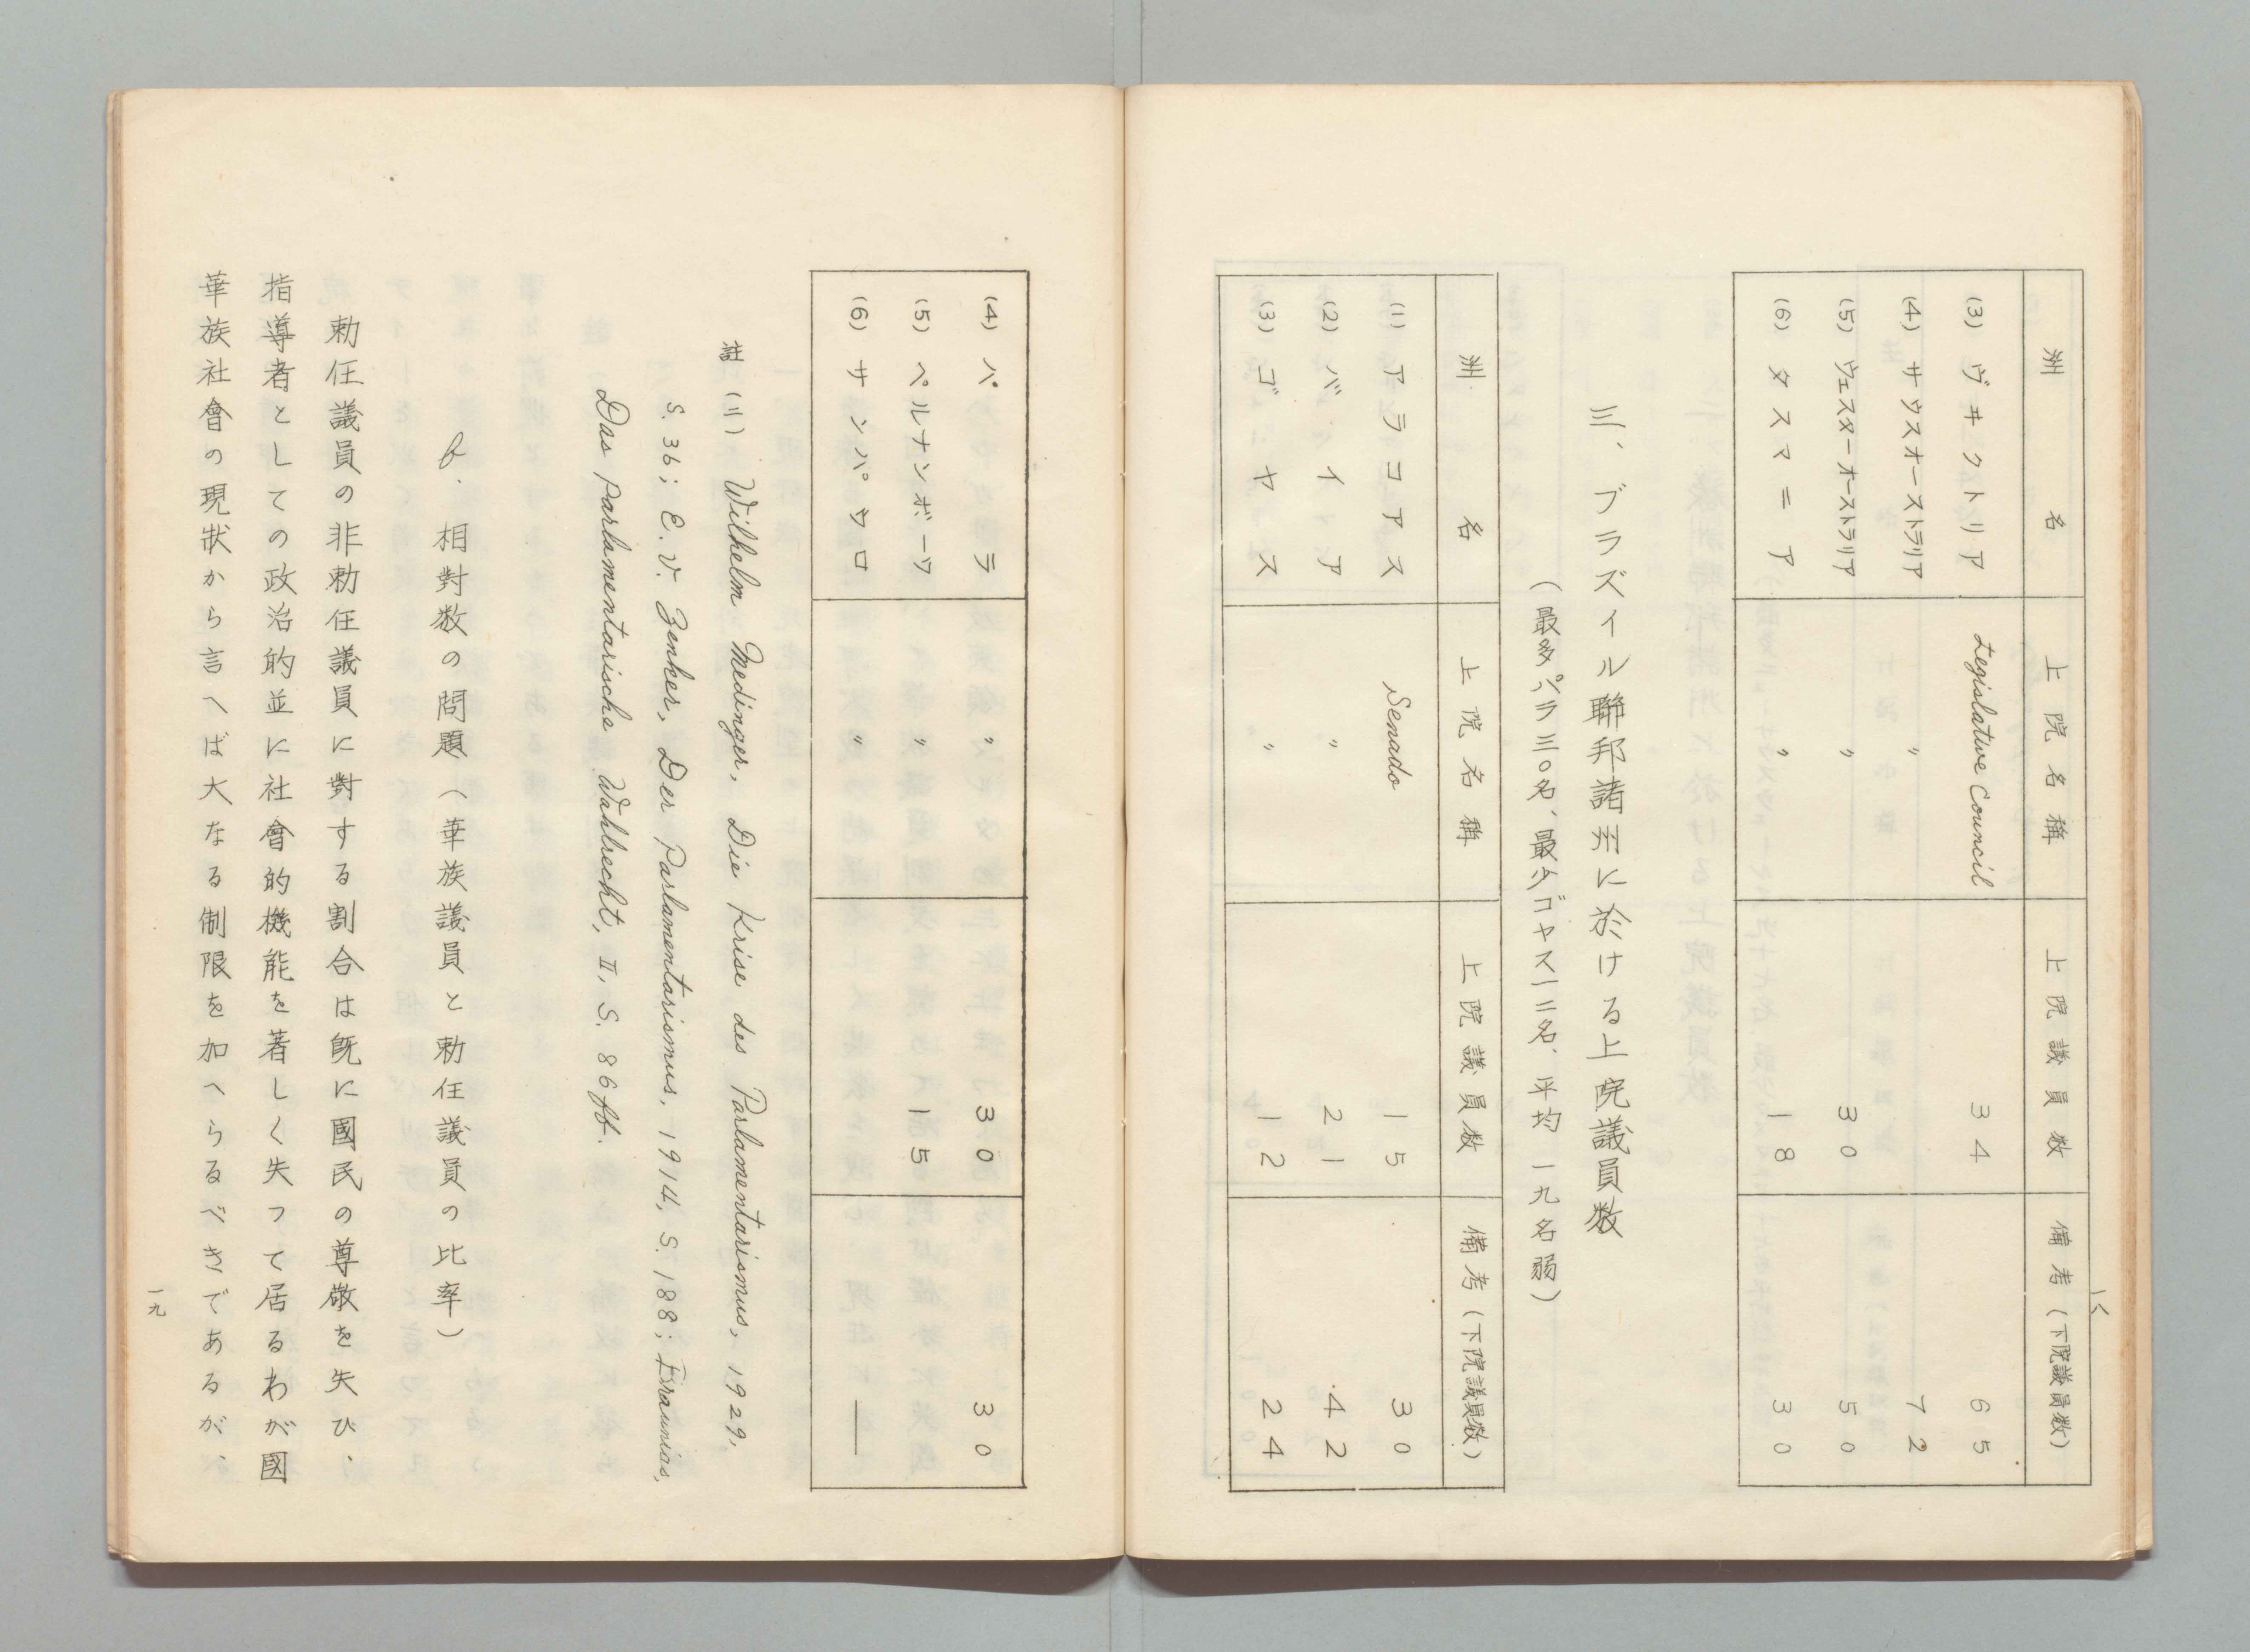 一八
洲名 上院名稱 上院議員数 備考(下院議員数)
(3) ヴヰクトリア Legislative Council 34 65
(4) サウスオーストラリア 〃 72
(5) ウェスターオーストラリア 〃 30 50
(6) タスマニア 〃 18 30
三、ブラズイル聯邦諸州に於ける上院議員数
(最多パラ三〇名、最少ゴヤス一二名、平均一九名弱)
洲名 上院名稱 上院議員数 備考(下院議員数)
(1) アラコアス Senado 15 30
(2) バイア 〃 21 42
(3) ゴヤス 〃 12 24
(4) パラ 〃 30 30
(5) ペルナンボーワ 〃 15
(6) サンパウロ 〃 —
註(二) Wilhelm Medinger, Die Krise des Parlamentarismus, 1929,
S. 36; E. V. Zenker, Der Parlamentarismus, 1914, S. 188; Braunias,
Das Parlamentarische Wahlrecht, II, S. 86ff.
b. 相對数の問題(華族議員と勅任議員の比率)
勅任議員の非勅任議員に對する割合は既に國民の尊敬を失ひ、
指導者としての政治的並に社會的機能を著しく失つて居るわが國
華族社會の現状から言へば大なる制限を加へらるべきであるが、
一九